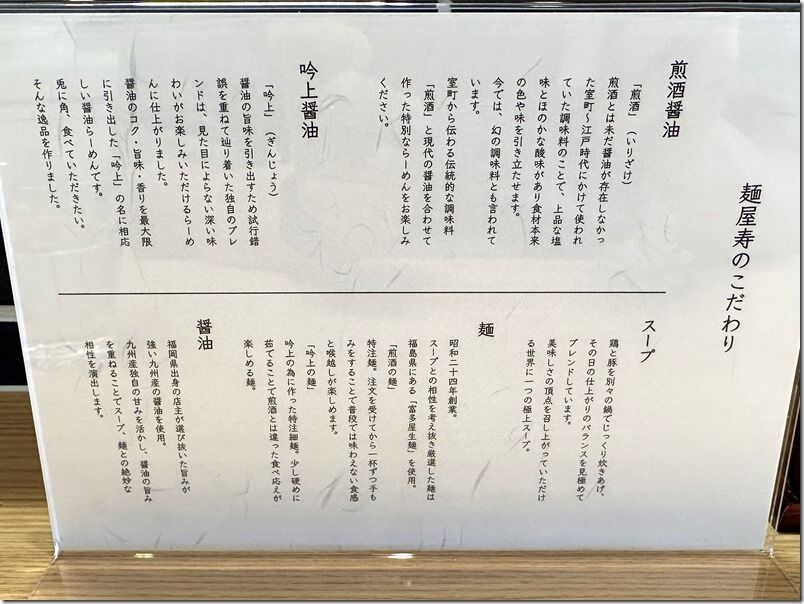 麺屋寿のこだわり
煎酒醤油
「煎酒」（いりざけ）
煎酒とは未だ醤油が存在しなかっ
た室町〜江戸時代にかけて使われ
ていた調味料のことで、上品な塩
味とほのかな酸味があり食材本来
の色や味を引き立たせます。
今では、幻の調味料とも言われて
います。
室町から伝わる伝統的な調味料
「煎酒」と現代の醤油を合わせて
作った特別ならーめんをお楽しみ
ください。
吟上醤油
「吟上」（ぎんじょう）
醤油の旨味を引き出すため試行錯
誤を重ねて辿り着いた独自のブレ
ンドは、見た目によらない深い味
わいがお楽しみいただけるらーめ
んに仕上がりました。
醤油のコク・旨味・香りを最大限
に引き出した「吟上」の名に相応
しい醤油らーめんです。
兎に角、食べていただきたい。
そんな逸品を作りました。
スープ
鶏と豚を別々の鍋でじっくり炊きあげ、
その日の仕上がりのバランスを見極めて
ブレンドしています。
美味しさの頂点を召し上がっていただけ
る世界に一つの極上スープ。
麺
昭和二十四年創業。
スープとの相性を考え抜き厳選した麺は
福島県にある「富多屋生麺」を使用。
「煎酒の麺」
特注麺。注文を受けてから一杯ずつ手も
みをすることで普段では味わえない食感
と喉越しが楽しめます。
「吟上の麺」
吟上の為に作った特注細麺。少し硬めに
茹でることで煎酒とは違った食べ応えが
楽しめる麺。
醤油
福岡県出身の店主が選び抜いた旨みが
強い九州産の醤油を使用。
九州産独自の甘みを活かし、醤油の旨み
を重ねることでスープ、麺との絶妙な
相性を演出します。